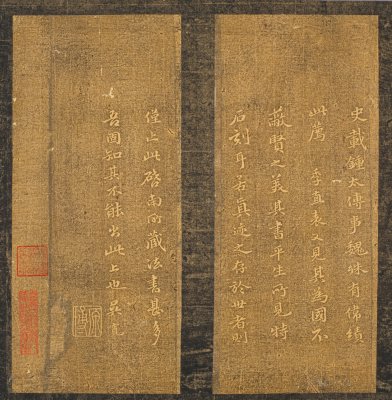 史載鍾太傅事魏殊有偉績
此薦季直表又見其為國不
蔽賢之美其書平生所見特
石刻耳若真迹之存於世者則
僅止此啓南所藏法書甚多
吾固知其不能出此上也吳寬